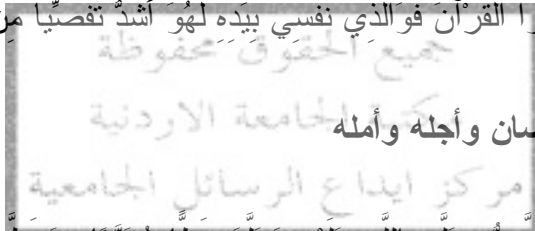 را القرآن فوَالذي نفسي بيَدِهِ لهُوَ أشدُّ تفصِّيًا مِن
جميع الحقوق محفوظة
مكتبة الجامعة الاردنية
سان وأجله وأمله
مركز ايداع الرسائل الجامعية